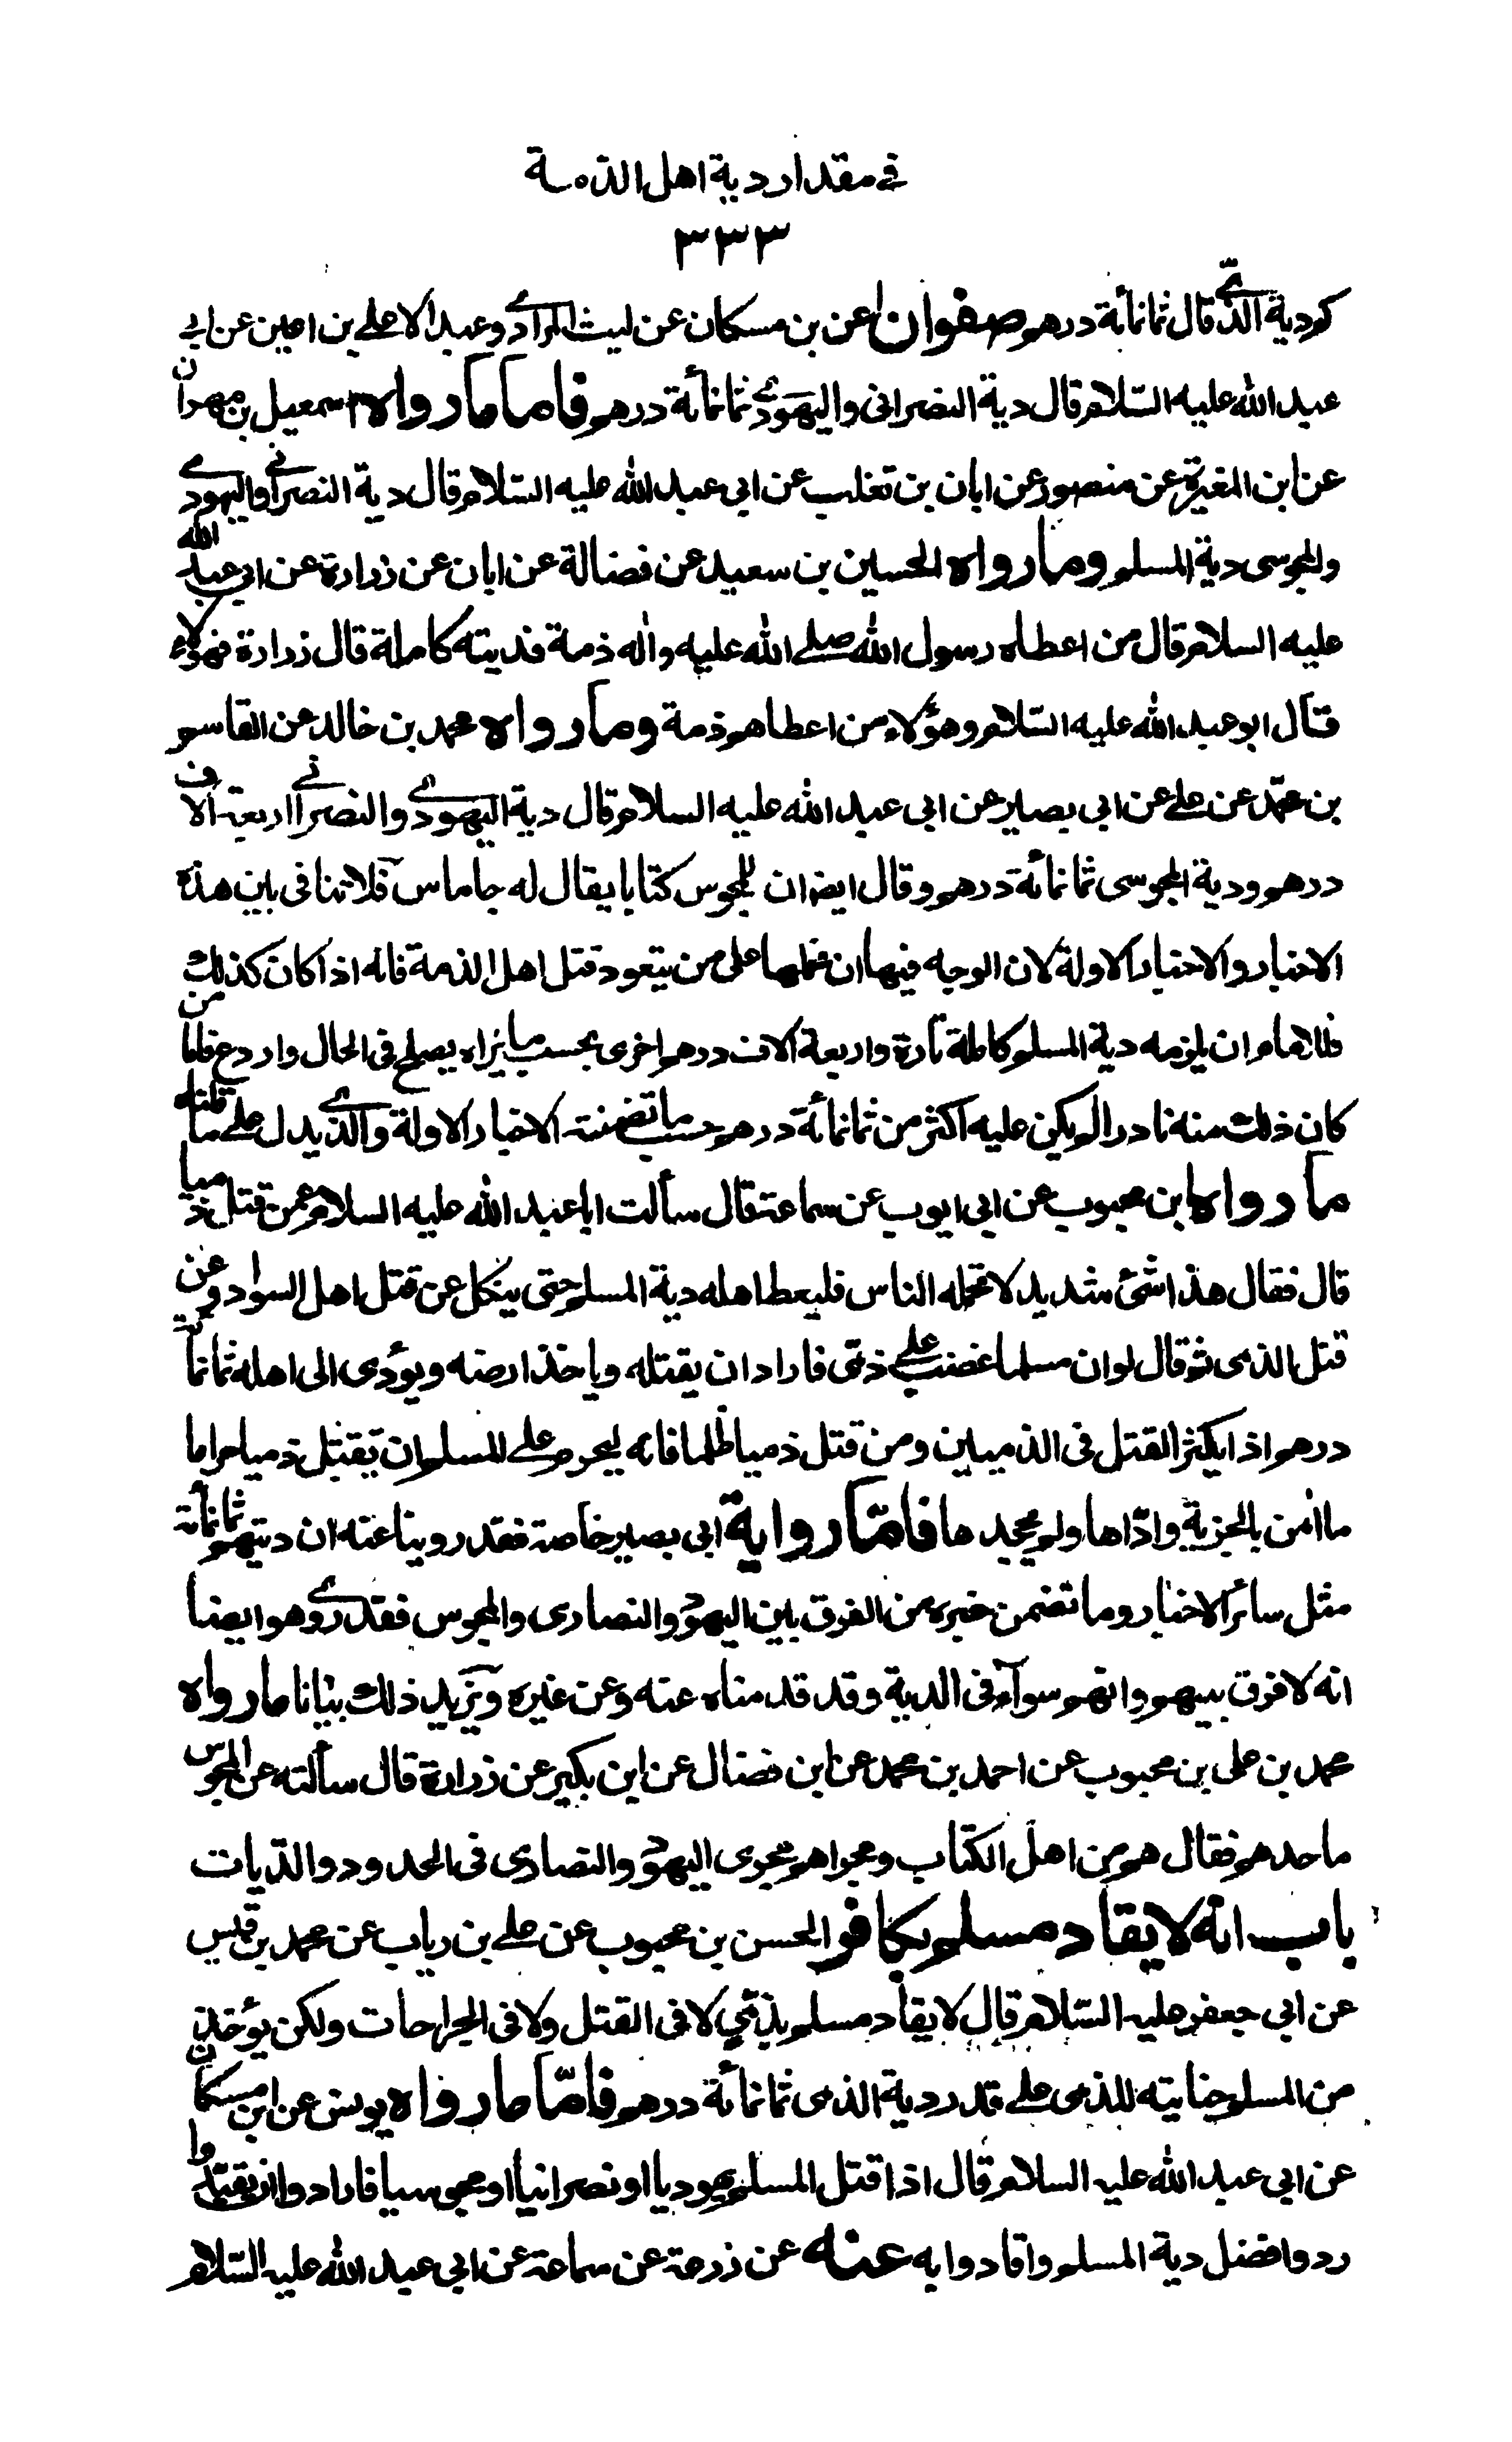 في مقدار دية اهل الذمة
٣٣٣
كم دية الذمي قال ثمانمائة درهم صفوان عن بن مسكان عن ليث المرادي وعبد الاعلى بن اعين عن ابي
عبد الله عليه السلام قال دية النصراني واليهودي ثمانمائة درهم فاما ما رواه اسمعيل بن مهران
عن ابن المغيرة عن منصور عن ابان بن تغلب عن ابي عبد الله عليه السلام قال دية النصراني واليهودي
والمجوسى دية المسلم وما رواه الحسين بن سعيد عن فضالة عن ابان عن زرارة عن ابي عبد الله
عليه السلام قال من اعطاه رسول الله صلى الله عليه واله ذمة فديته كاملة قال زرارة فهؤلاء
قال ابو عبد الله عليه السلام وهؤلاء من اعطاهم ذمة وما رواه محمد بن خالد عن القاسم
بن محمد عن علي عن ابي بصير عن ابي عبد الله عليه السلام قال دية اليهودي والنصراني اربعة الاف
درهم ودية المجوسى ثمانمائة درهم وقال ايضا ان للمجوس كتابا يقال له جاماس فلا تنافى بين هذه
الاخبار والاخبار الاولة لان الوجه فيها ان نحملها على من يتعود قتل اهل الذمة فانه اذا كان كذلك
فللامام ان يلزمه دية المسلم كاملة تارة واربعة الاف درهم اخرى بحسب ما يراه يصلح في الحال واردع فاما من
كان ذلك منه نادرا لم يكن عليه اكثر من ثمانمائة درهم حسب ما تضمنته الاخبار الاولة والذي يدل على ما قلناه
ما رواه ابن محبوب عن ابى ايوب عن سماعة قال سألت ابا عبد الله عليه السلام عمن قتل ذميا
قال فقال هذا شئ شديد لا تحمله الناس فليعط اهله دية المسلم حتى ينكل عن قتل اهل السواد وعن
قتل الذمى ثم قال لو ان مسلما غضب على ذمي فاراد ان يقتله وياخذ ارضه ويؤدى الى اهله ثمانمائة
درهم اذا يكثر القتل فى الذميين ومن قتل ذميا ظلما فانه ليحرم على المسلم ان يقتل ذميا حراما
ما امن بالجزية وادّاها ولم يجحدها فامّا رواية ابى بصير خاصة فقد روينا عنه ان ديتهم ثمانمائة
مثل سائر الاخبار وما تضمن خبره من الفرق بين اليهود والنصارى والمجوس فقد روى هو ايضا
انه لا فرق بينهم وانهم سوآء فى الدية وقد قدمناه عنه وعن غيره ويزيد ذلك بيانا ما رواه
محمد بن على بن محبوب عن احمد بن محمد عن ابن فضال عن ابن بكير عن زرارة قال سألته عن المجوس
ما حدهم فقال هم من اهل الكتاب ومجراهم مجرى اليهود والنصارى فى الحدود والدّيات
باب انه لا يقاد مسلم بكافر الحسن بن محبوب عن علي بن رياب عن محمد بن قيس
عن ابي جعفر عليه السّلام قال لا يقاد مسلم بذمّي لا فى القتل ولا فى الجراحات ولكن يؤخذ
من المسلم جنايته للذمى على قدر دية الذمى ثمانمائة درهم فامّا ما رواه يونس عن ابن مسكان
عن ابي عبد الله عليه السلام قال اذا قتل المسلم يهوديا او نصرانيا او مجوسيا فارادوا ان يقتلوا
ردوا فضل دية المسلم واقادوا به عنه عن زرعة عن سماعة عن ابي عبد الله عليه السّلام